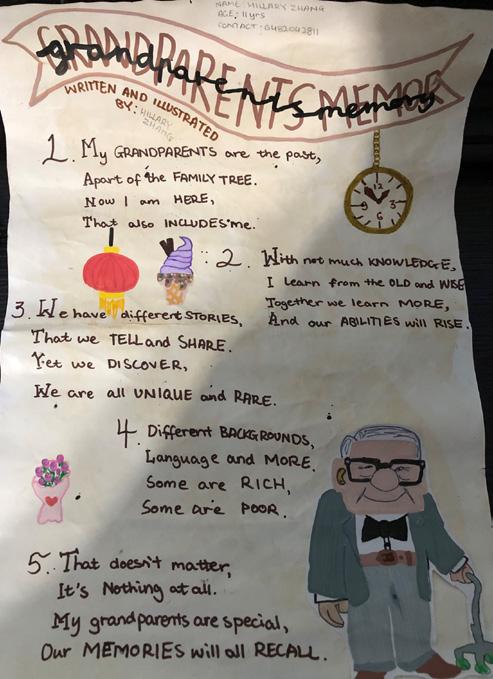 NAME: HILLARY ZHANG
AGE: 11 yrs
CONTACT: 0432042811
GRANDPARENTS MEMORY
grandparents memory
WRITTEN AND ILLUSTRATED
BY: HILLARY
ZHANG
1. My GRANDPARENTS are the past,
Apart of the FAMILY TREE.
Now I am HERE,
That also INCLUDES me.
12
3
6
9
2. With not much KNOWLEDGE,
I learn from the OLD and WISE
Together we learn MORE,
And our ABILITIES will RISE.
3. We have different STORIES,
That we TELL and SHARE.
Yet we DISCOVER,
We are all UNIQUE and RARE.
4. Different BACKGROUNDS,
Language and MORE.
Some are RICH,
Some are POOR.
5. That doesn't matter,
It's Nothing at all.
My grandparents are special,
Our MEMORIES will all RECALL.